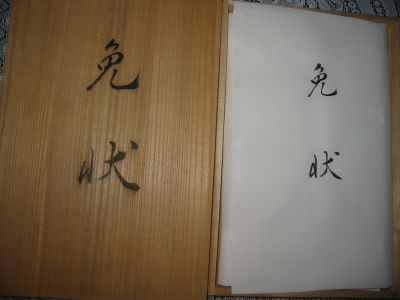 免状
免状